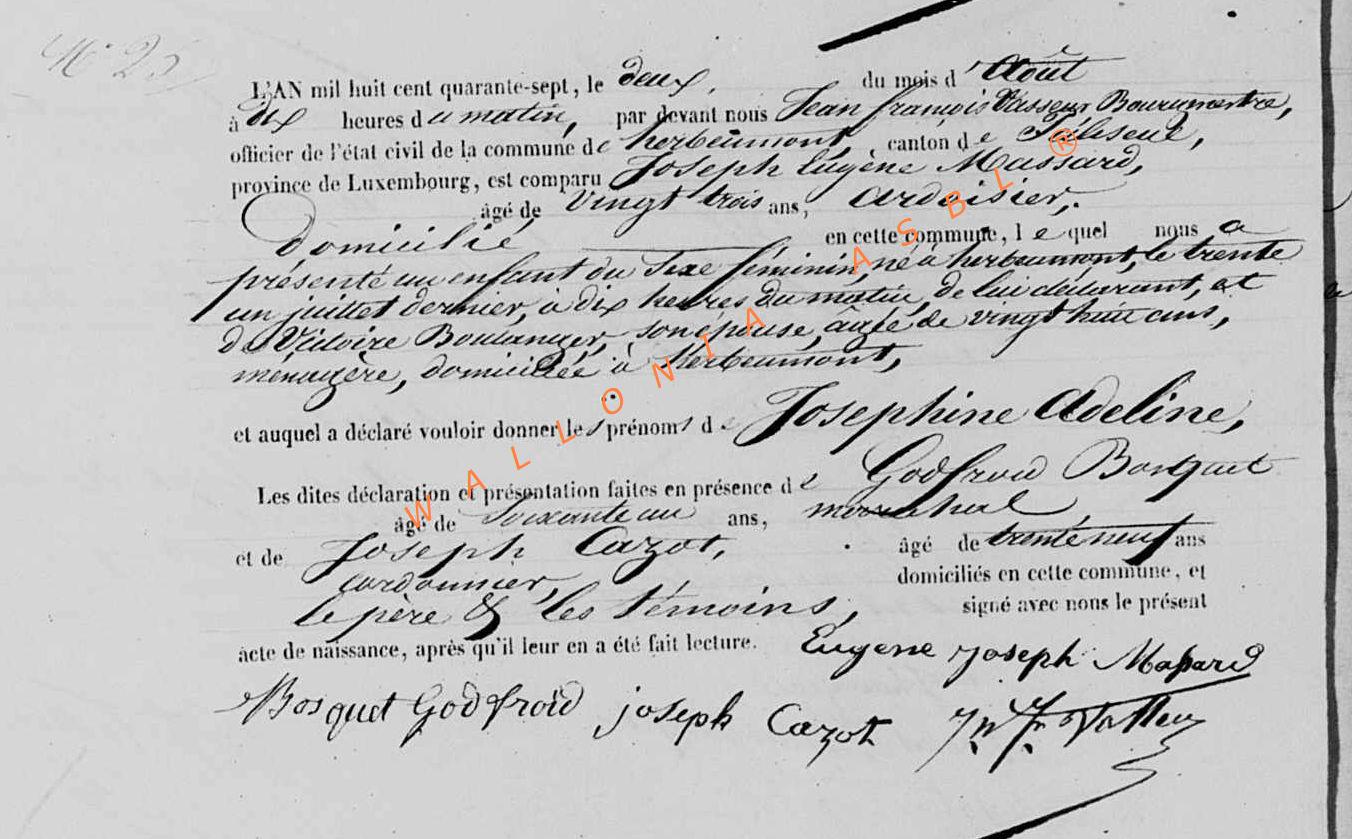 N° 25
L'AN mil huit cent quarante-sept, le deux, du mois d'Août
à dix heures du matin, par devant nous Jean françois Vasseur Bourgmestre,
officier de l'état civil de la commune de herbeumont, canton de Paliseul,
province de Luxembourg, est comparu Joseph Eugène Massard,
âgé de vingt trois ans, ardoisier,
domicilié en cette commune, lequel nous a
présenté un enfant du sexe féminin, né à herbeumont, le trente
un juillet dernier, à dix heures du matin, de lui déclarant, et
de Victoire Boulanger, son épouse, âgée de vingt huit ans,
ménagère, domiciliée à herbeumont,
et auquel a déclaré vouloir donner les prénoms de Josephine Adeline,
Les dites déclaration et présentation faites en présence de Godfroid Bosquet
âgé de Soixante un ans, maréchal,
et de Joseph Cazot, âgé de trente neuf ans
cordonnier, domiciliés en cette commune, et
le père & les témoins, signé avec nous le présent
acte de naissance, après qu'il leur en a été fait lecture. Eugene Joseph Massard
Bosquet Godfroid joseph Cazot
WALLONIA ASBL ®